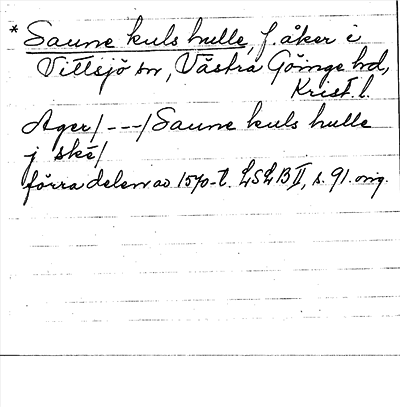 * Saune kuls hulle, f. åker i
Vittsjö sn, Västra Göinge hd,
Krist. l.
Ager/---/Saune kuls hulle
j ské/
förra delen av 1570-t. LSLB II, s. 91. orig.